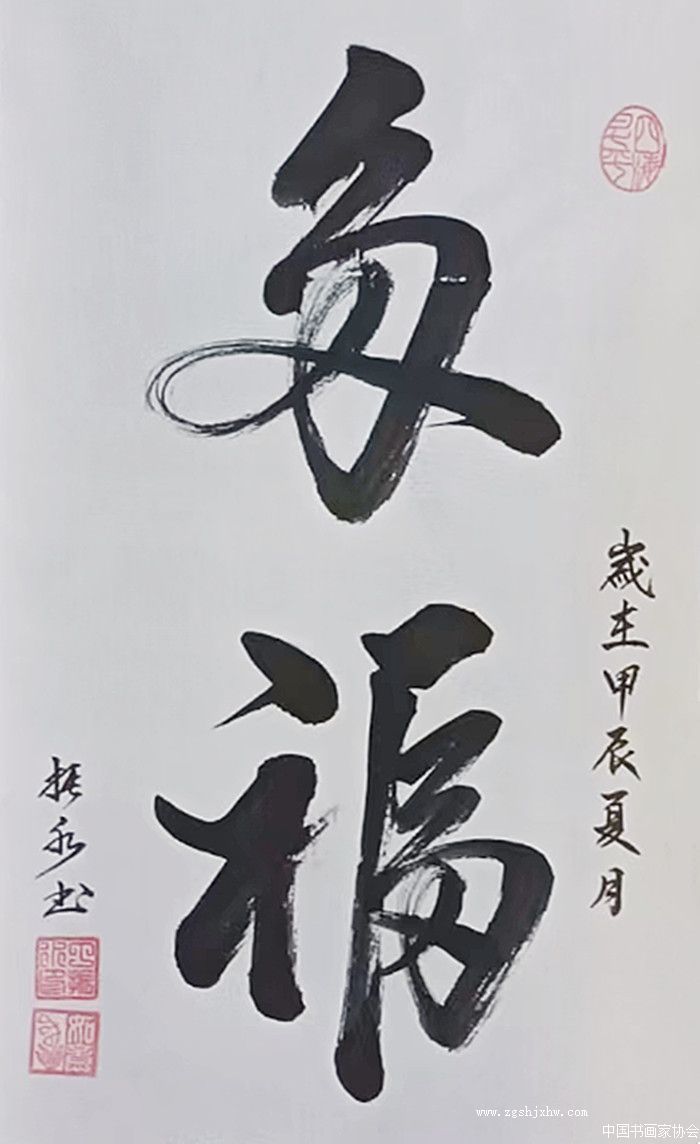 多福
歲在甲辰夏月
振永书
www.zgshjxhw.com
中国书画家协会